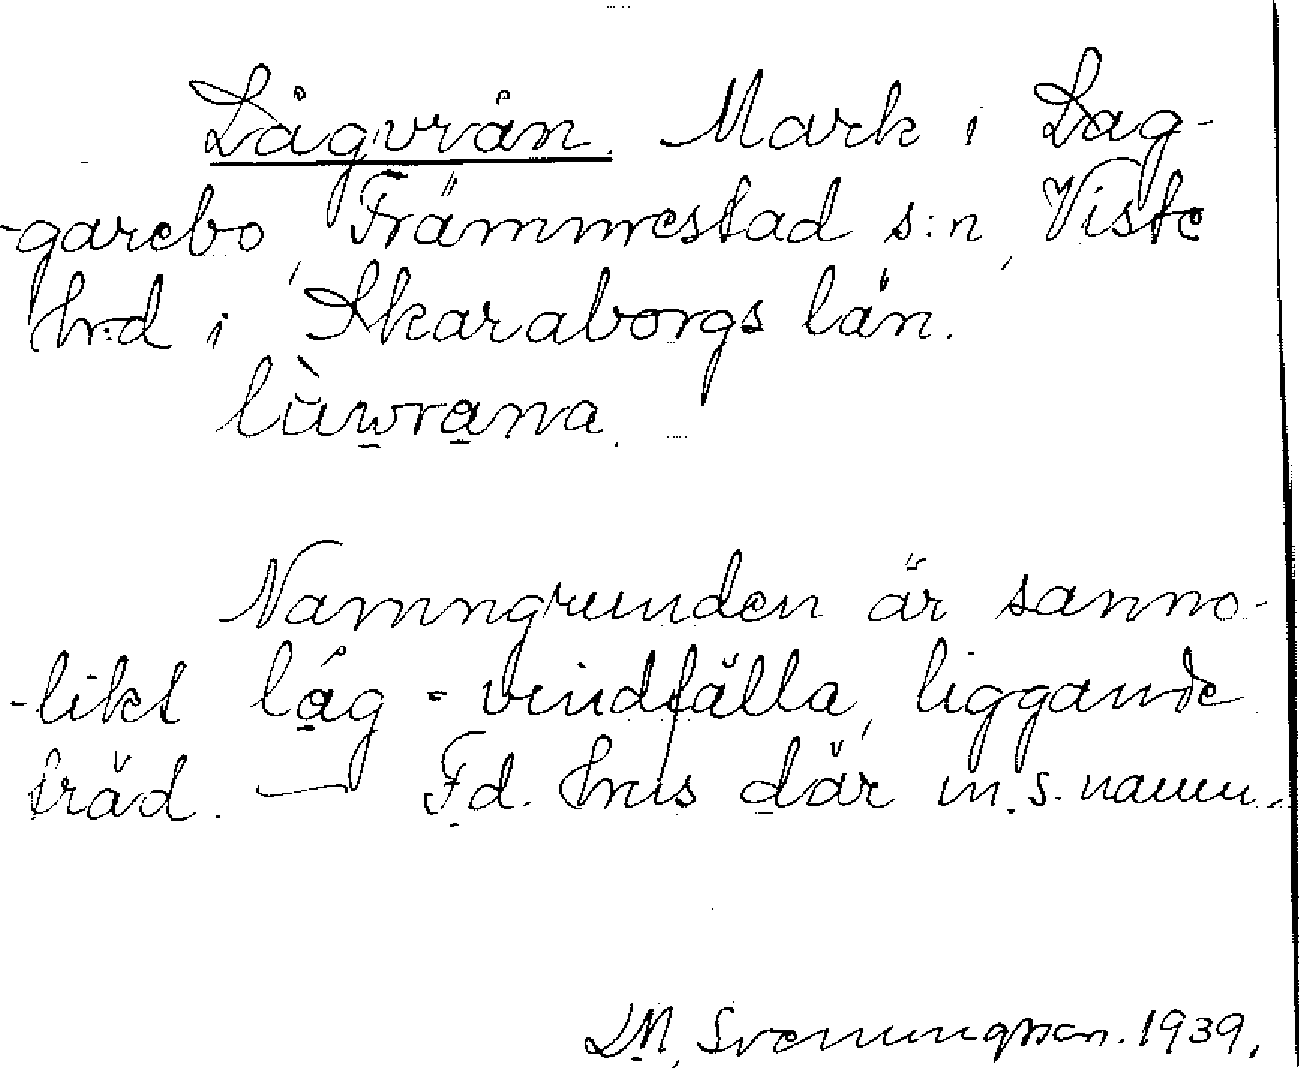 Lågvrån. Mark i Lag-
-garebo, Främmestad s:n, Viste
hrd i Skaraborgs län.
lùwrana.
Namngrunden är sanno-
-likt låg - vindfälla, liggande
träd. — Fd. hus där m. s. namn.
D.N. Svenungsson. 1939.